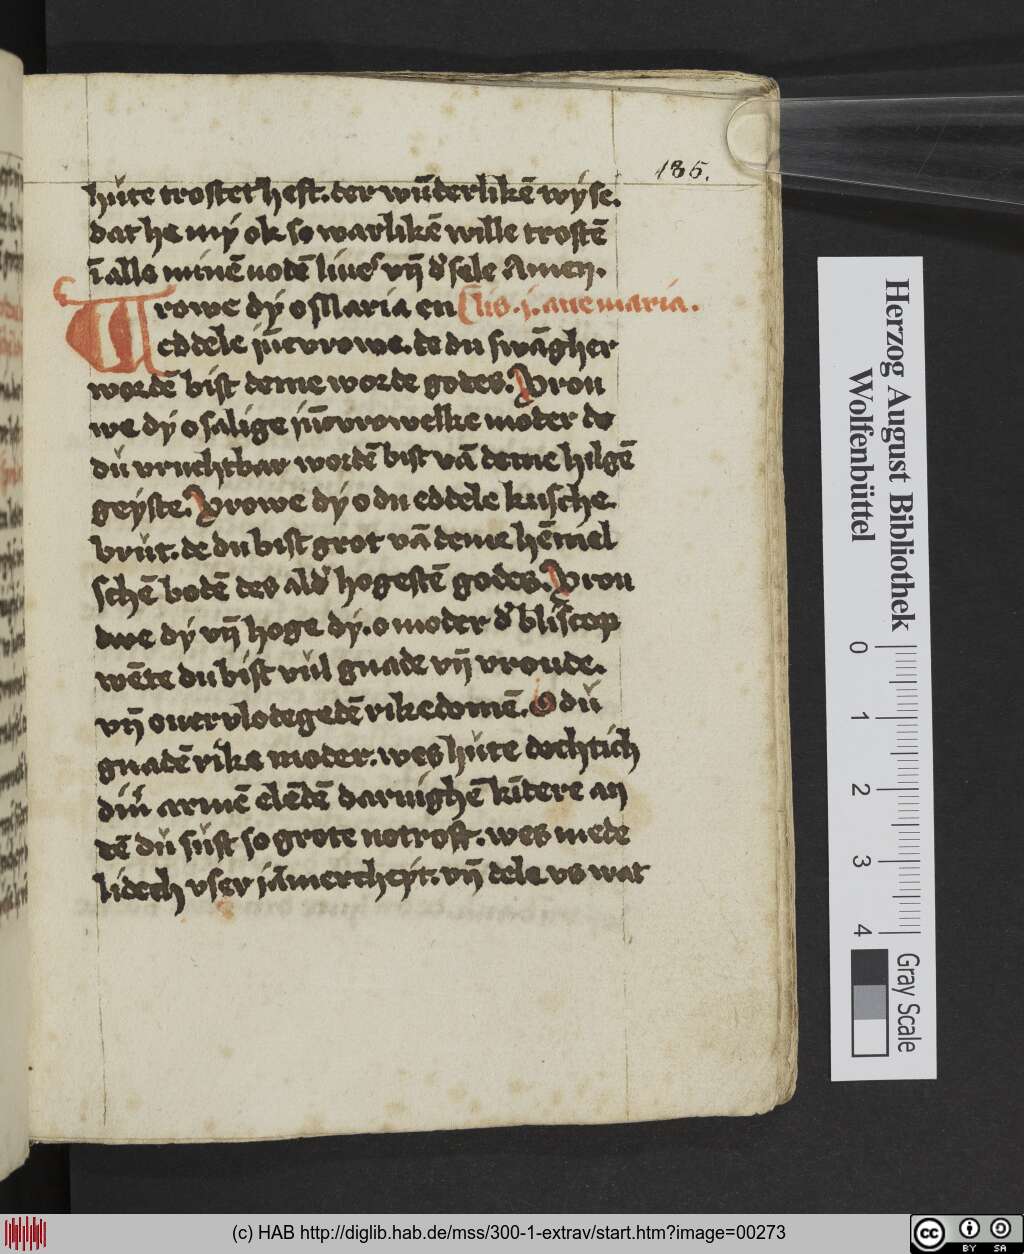 185.
hůte trostet heft. der wūderlikē wyse.
dat he my ok so warlikē wille trostē
ī alle minē nodē liues vn̄ d' sele Amen.
Vrowe dy o Maria en Aue maria.
eddele jūcvrowe. de du swāgher
wordē bist deme worde godes. Vrou
we dy o salige jūcvrowelke moder de
dů vruchtbar wordē bist vā deme hilgē
geyste. Vrowe dy o du eddele kusche
brůt. de du bist grot vā deme hēmel
schē bodē des ald' hogestē godes. Vrou
dwe dy vn̄ hoge dy. o moder d'
wēte du bist vůl gnade vn̄ vroude.
vn̄ ouervlotegedē rikedomē. O dů
gnadē rike moder. wes hůte dechtich
armē elēdē kīdere an
dē dů sůst so grote notroft. wes mede
lidech vser jāmercheyt. vn̄ dele vs wat
Herzog August Bibliothek
Wolfenbüttel
0 1 2 3 4
Gray Scale
(c) HAB http://diglib.hab.de/mss/300-1-extrav/start.htm?image=00273
cc BY SA